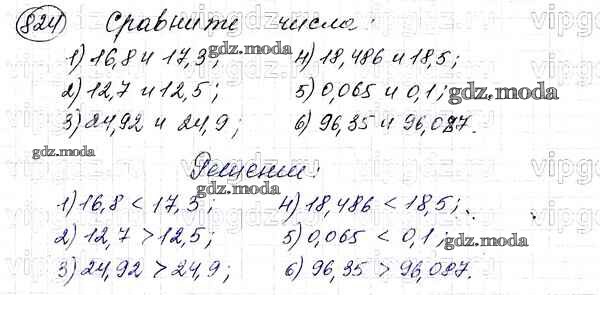 824 Сравните числа:
1) 16,8 и 17,3; 4) 18,486 и 18,5;
gdz.moda
2) 12,7 и 12,5; 5) 0,065 и 0,1; gdz.moda
3) 24,92 и 24,9; 6) 96,35 и 96,087.
gdz.moda
Решение:
gdz.moda
1) 16,8 < 17,3; 4) 18,486 < 18,5;
2) 12,7 > 12,5; 5) 0,065 < 0,1; gdz.moda
gdz.moda
3) 24,92 > 24,9; 6) 96,35 > 96,087.